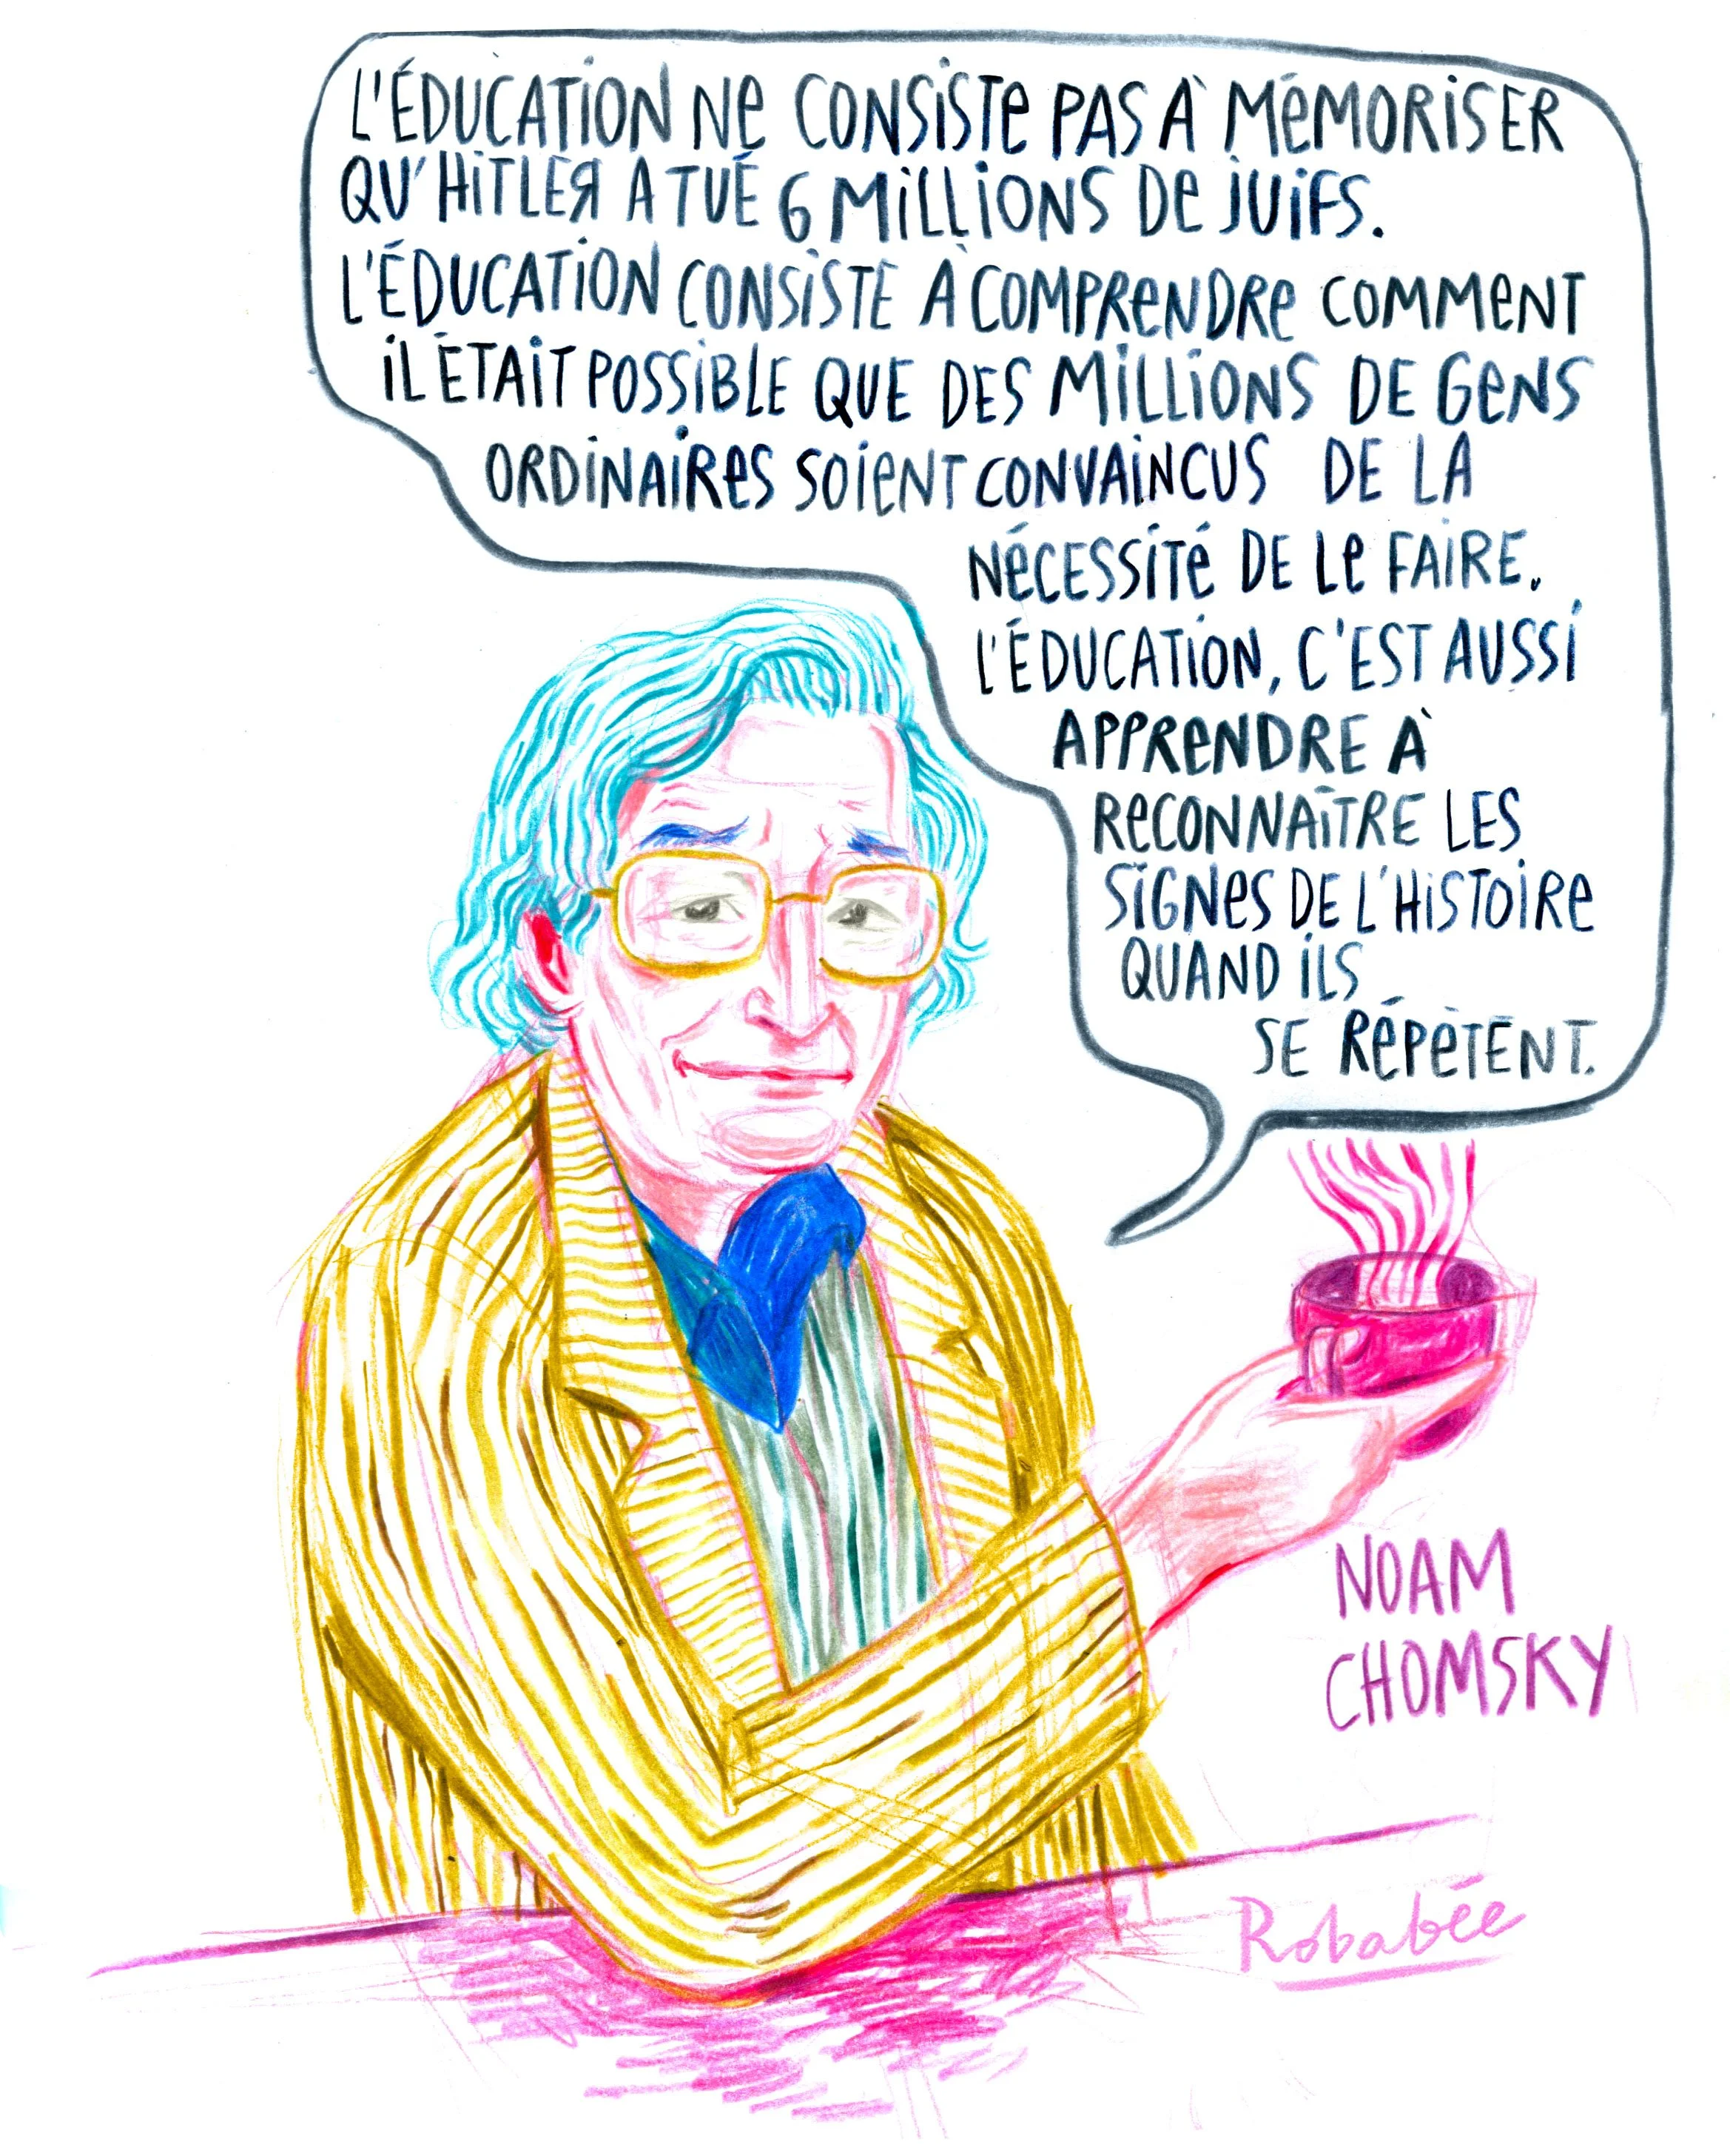 L'ÉDUCATION NE CONSISTE PAS À MÉMORISER
QU'HITLER A TUÉ 6 MILLIONS DE JUIFS.
L'ÉDUCATION CONSISTE À COMPRENDRE COMMENT
IL ÉTAIT POSSIBLE QUE DES MILLIONS DE GENS
ORDINAIRES SOIENT CONVAINCUS DE LA
NÉCESSITÉ DE LE FAIRE.
L'ÉDUCATION, C'EST AUSSI
APPRENDRE À
RECONNAÎTRE LES
SIGNES DE L'HISTOIRE
QUAND ILS
SE RÉPÈTENT.
NOAM
CHOMSKY
Robabée